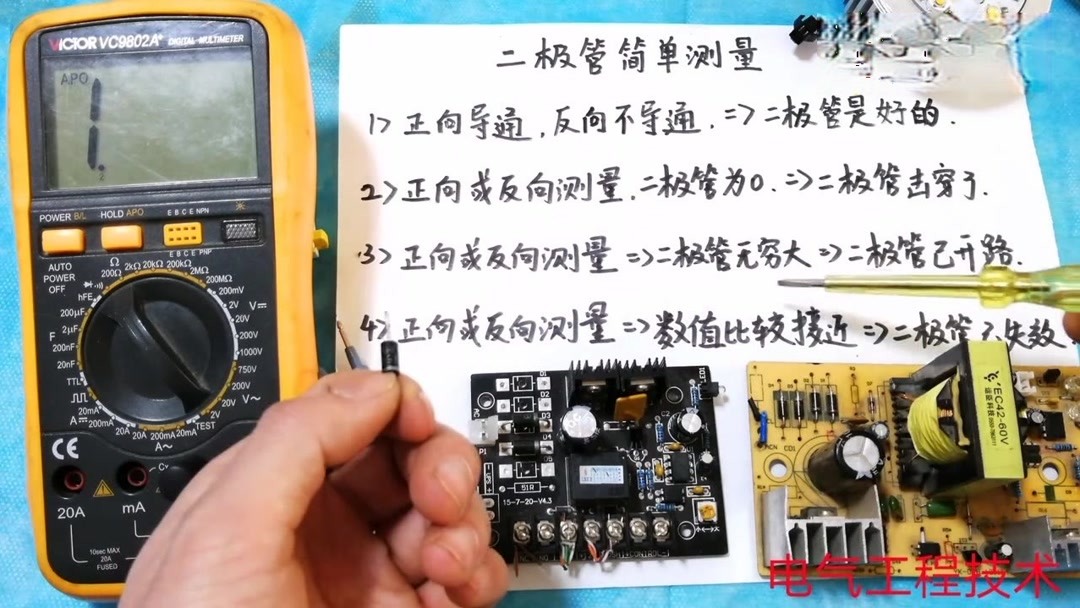 VICTOR VC9802A+ DIGITAL MULTIMETER
APO
1.
2
POWER B/L
HOLD APO
E B C E NPN
E B C E PNP
AUTO
POWER
OFF
Ω
200Ω 2kΩ 20kΩ 200kΩ 2MΩ
200MΩ
200mV
hFE
2V V
F
200μF
20V
2μF
200V
200nF
1000V
20nF
750V
TTL
200V V~
20mA
2V
A
20A 200mA 20mA TEST
A~
CE
20A
mA
10sec MAX
20A
FUSED
二极管简单测量
1> 正向导通,反向不导通. => 二极管是好的.
2> 正向或反向测量,二极管为0. => 二极管击穿了.
3> 正向或反向测量 => 二极管无穷大 => 二极管已开路.
4> 正向或反向测量 => 数值比较接近 => 二极管已失效.
D2
D3
D4
D5
P1
51R
C2
15-7-20-V4.3
YEC42-60V
ACN
CD1
电气工程技术